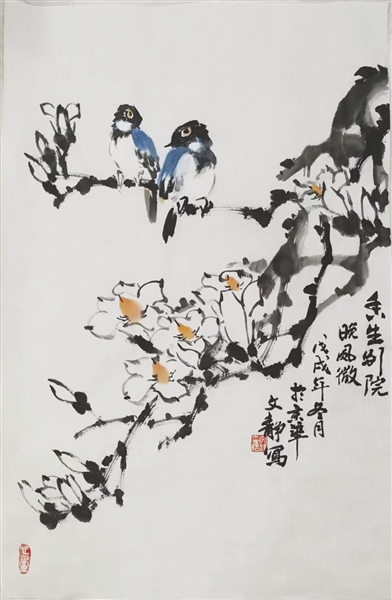 香生别院
晚风微
戊戌年冬月
於京华
文静寫